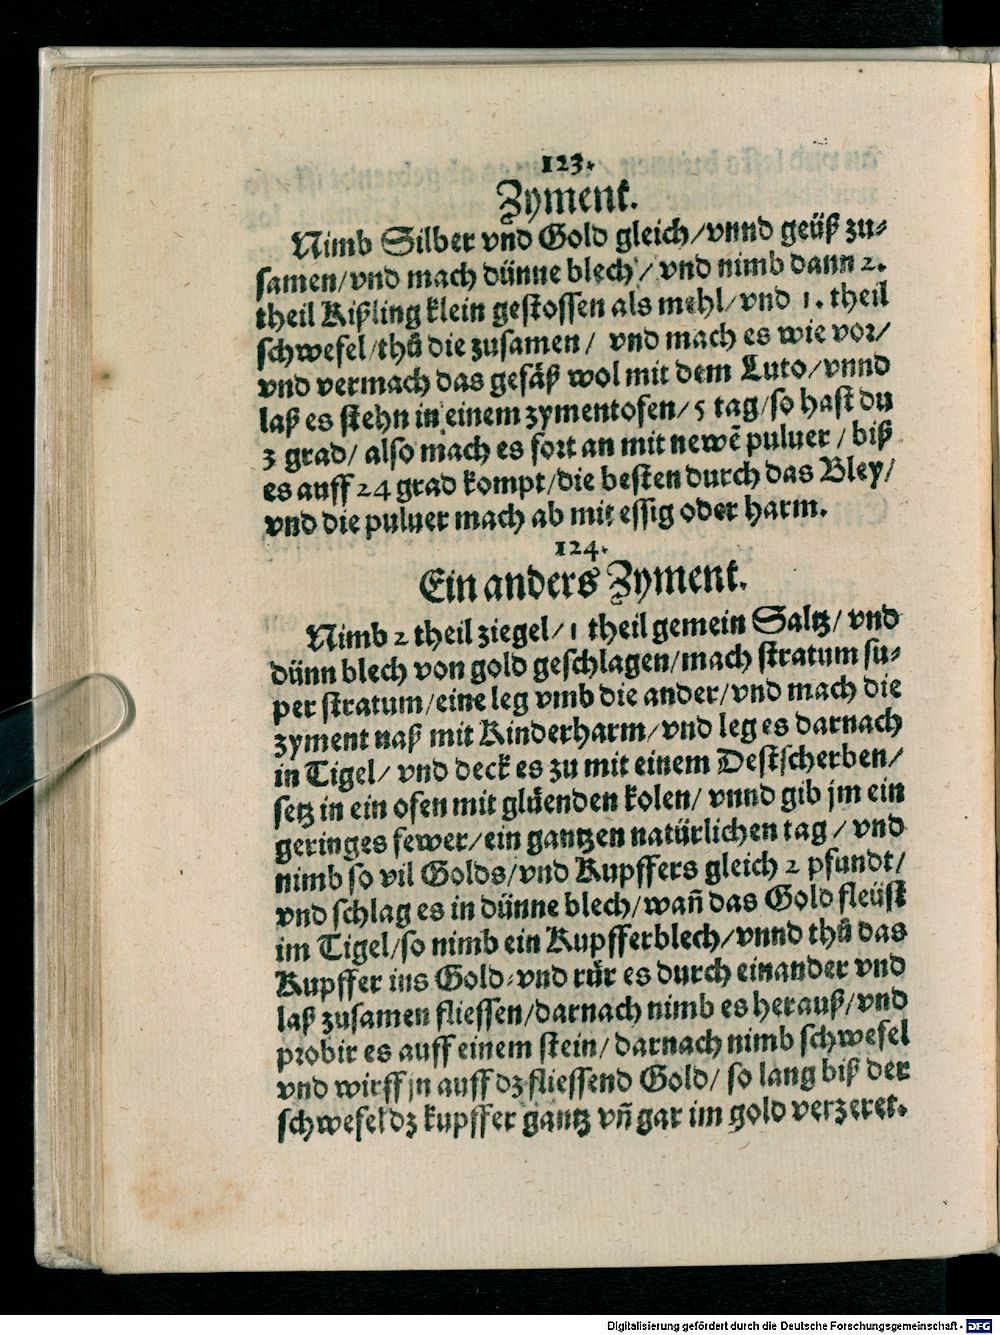 123.
Zyment.
Nimb Silber vnd Gold gleich/vnnd geüß zu⸗
samen/vnd mach dünne blech/ vnd nimb dann 2.
theil Kißling klein gestossen als mehl/vnd 1. theil
schwefel/thů die zusamen/ vnd mach es wie vor/
vnd vermach das gefäß wol mit dem Luto/vnnd
laß es stehn in einem zymentofen/5 tag/so hast du
3 grad/ also mach es fort an mit newẽ puluer / biß
es auff 24 grad kompt/die besten durch das Bley/
vnd die puluer mach ab mit essig oder harm.
124.
Ein anders Zyment.
Nimb 2 theil ziegel/1 theil gemein Saltz/ vnd
dünn blech von gold geschlagen/mach stratum su⸗
per stratum/eine leg vmb die ander/vnd mach die
zyment naß mit Kinderharm/vnd leg es darnach
in Tigel/ vnd deck es zu mit einem Destscherben/
setz in ein ofen mit glůenden kolen/ vnnd gib jm ein
geringes fewer/ein gantzen natürlichen tag / vnd
nimb so vil Golds/vnd Kupffers gleich 2 pfundt/
vnd schlag es in dünne blech/wañ das Gold fleüst
im Tigel/so nimb ein Kupfferblech/vnnd thů das
Kupffer ins Gold/vnd růr es durch einander vnd
laß zusamen fliessen/darnach nimb es herauß/vnd
probir es auff einem stein/ darnach nimb schwefel
vnd wirff jn auff dz fliessend Gold/ so lang biß der
schwefel dz kupffer gantz vñ gar im gold verzeret.
Digitalisierung gefördert durch die Deutsche Forschungsgemeinschaft - DFG